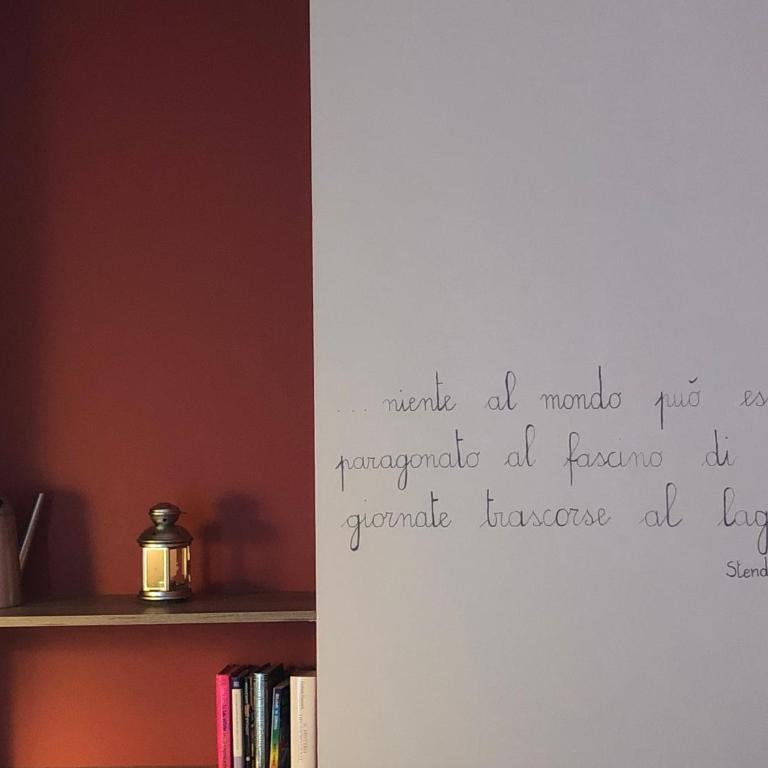 ... niente al mondo può es
paragonato al fascino di
giornate trascorse al lag
Stend